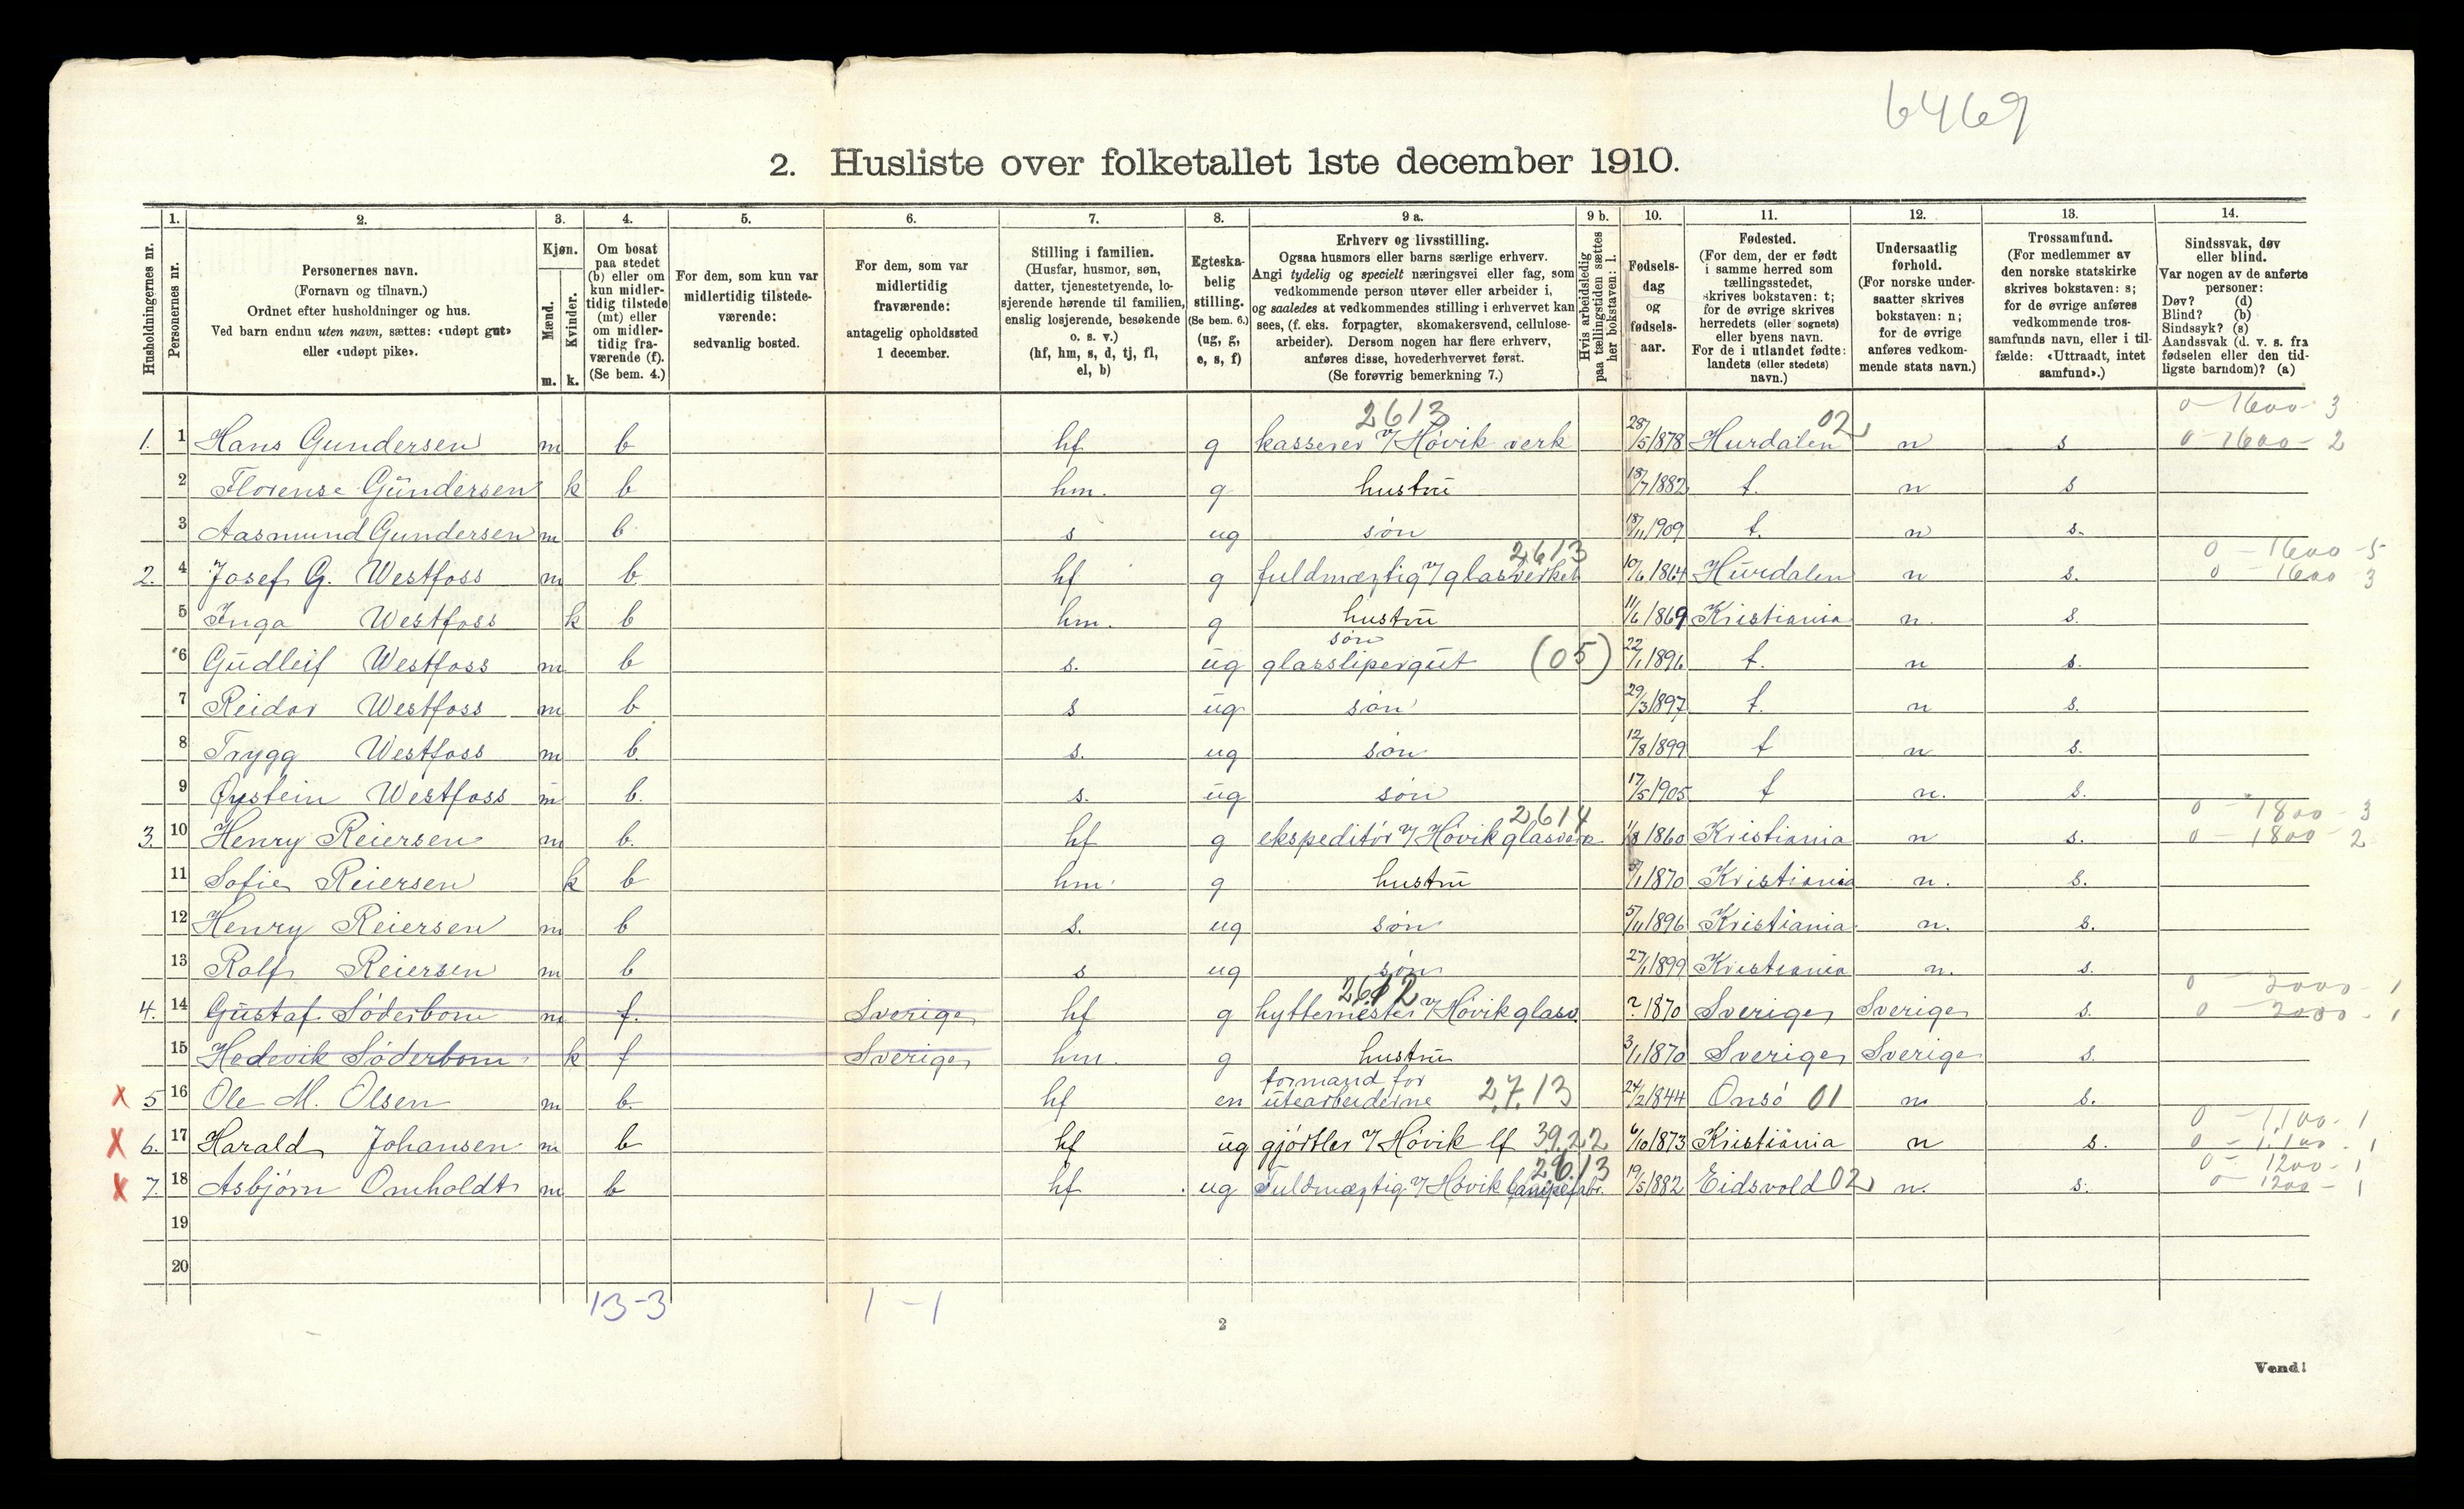 6469
2. Husliste over folketallet 1ste december 1910.
Husholdningernes nr.
1. Personernes nr.
2. Personernes navn.
(Fornavn og tilnavn.)
Ordnet efter husholdninger og hus.
Ved barn endnu uten navn, sættes: «udøpt gut»
eller «udøpt pike».
3. Kjøn.
Mænd. m.
Kvinder. k.
4. Om bosat
paa stedet
(b) eller om
kun midler-
tidig tilstede
(mt) eller
om midler-
tidig fra-
værende (f).
(Se bem. 4.)
5. For dem, som kun var
midlertidig tilstede-
værende:
sedvanlig bosted.
6. For dem, som var
midlertidig
fraværende:
antagelig opholdssted
1 december.
7. Stilling i familien.
(Husfar, husmor, søn,
datter, tjenestetyende, lo-
sjerende hørende til familien,
enslig losjerende, besøkende
o. s. v.)
(hf, hm, s, d, tj, fl,
el, b)
8. Egteska-
belig
stilling.
(Se bem. 6.)
(ug, g,
e, s, f)
9 a. Erhverv og livsstilling.
Ogsaa husmors eller barns særlige erhverv.
Angi tydelig og specielt næringsvei eller fag, som
vedkommende person utøver eller arbeider i,
og saaledes at vedkommendes stilling i erhvervet kan
sees, (f. eks. forpagter, skomakersvend, cellulose-
arbeider). Dersom nogen har flere erhverv,
anføres disse, hovederhvervet først.
(Se forøvrig bemerkning 7.)
9 b. Hvis arbeidsledig
paa tællingstiden sættes
her bokstaven: l.
10. Fødsels-
dag
og
fødsels-
aar.
11. Fødested.
(For dem, der er født
i samme herred som
tællingsstedet,
skrives bokstaven: t;
for de øvrige skrives
herredets (eller sognets)
eller byens navn.
For de i utlandet fødte:
landets (eller stedets)
navn.)
12. Undersaatlig
forhold.
(For norske under-
saatter skrives
bokstaven: n;
for de øvrige
anføres vedkom-
mende stats navn.)
13. Trossamfund.
(For medlemmer av
den norske statskirke
skrives bokstaven: s;
for de øvrige anføres
vedkommende tros-
samfunds navn, eller i til-
fælde: «Uttraadt, intet
samfund».)
14. Sindssvak, døv
eller blind.
Var nogen av de anførte
personer:
Døv? (d)
Blind? (b)
Sindssyk? (s)
Aandssvak (d. v. s. fra
fødselen eller den tid-
ligste barndom)? (a)
2613 02 0 - 1600 - 3
1. 1 Hans Gundersen m b hf g kasserer v/ Høvik verk 28/5 1878 Hurdalen n s 0 - 1600 - 2
2 Florense Gundersen k b hm. g hustru 18/7 1882 t. n s
3 Aasmund Gundersen m b s ug søn 18/11 1909 t. n s.
2613 0 - 1600 - 5
2. 4 Josef G. Westfoss m b. hf g fuldmægtig v/ glasverket 10/6 1864 Hurdalen n s. 0 - 1600 - 3
5 Inga Westfoss k b hm. g hustru 11/6 1869 Kristiania n. s.
søn
6 Gudleif Westfoss m b s. ug glasslipergut (05) 22/1 1896 t. n s.
7 Reidar Westfoss m b s ug søn 29/3 1897 t. n s.
8 Trygg Westfoss m b. s. ug søn 12/8 1899 t n s.
9 Øystein Westfoss m b. s. ug søn 17/5 1905 t n. s.
2614 0 - 1800 - 3
3. 10 Henry Reiersen m b. hf g ekspeditør v/ Høvik glasverk 1/8 1860 Kristiania n s. 0 - 1800 - 2
11 Sofie Reiersen k b hm. g hustru 1870 Kristiania n. s.
12 Henry Reiersen m b s. ug søn 5/11 1896 Kristiania n. s.
13 Rolf Reiersen m b s ug søn 27/1 1899 Kristiania n. s.
2612 0 2000 - 1
4. 14 Gustaf Söderbom m f. Sverige hf g hyttemester v/ Høvik glasv. ? 1870 Sverige Sverige s. 0 - 2000 - 1
15 Hedevik Söderbom k f Sverige hm. g hustru 3/1 1870 Sverige Sverige s.
formand for
x 5 16 Ole M. Olsen m b. hf en utearbeiderne 27.13 24/2 1844 Onsö 01 n s.
0 - 1,100 - 1
x 6. 17 Harald Johansen m b hf ug gjørtler v/ Høvik lf 39,22 6/10 1873 Kristiania n s. 0 - 1,100 - 1
26.13 0 - 1200 - 1
x 7. 18 Asbjørn Omholdt m b hf ug Fuldmægtig v/ Høvik lampefabr. 19/5 1882 Eidsvold 02 n. s. 0 - 1200 - 1
19
20
13-3 1-1
2
Vend!